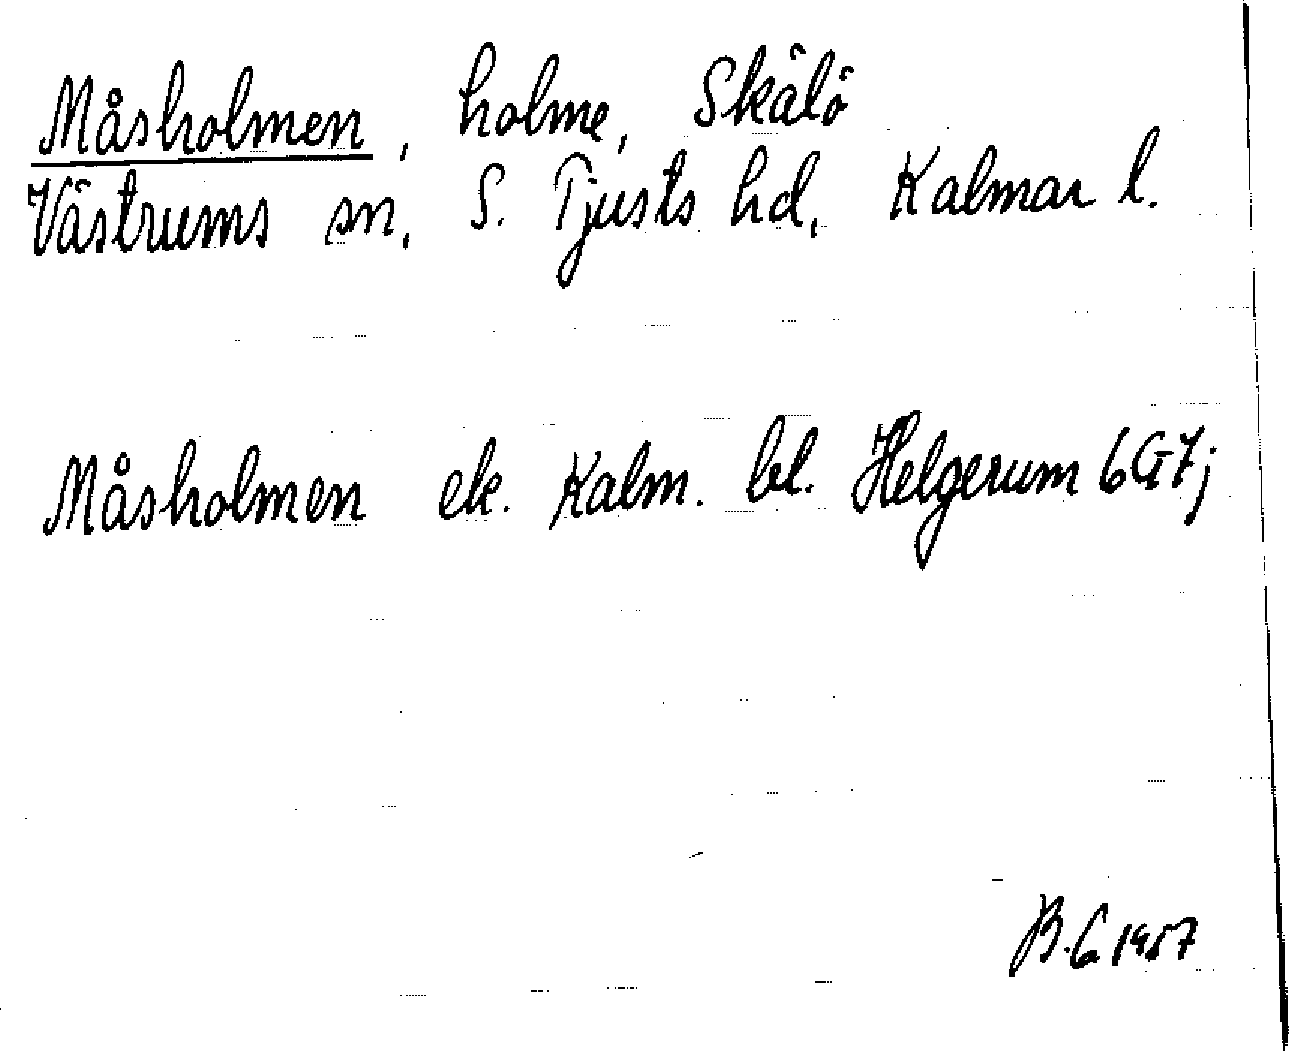 Måsholmen, holme, Skälö
Västrums sn, S. Tjusts hd, Kalmar l.
Måsholmen ek. Kalm. bl. Helgerum 6G7j
B.G 1957